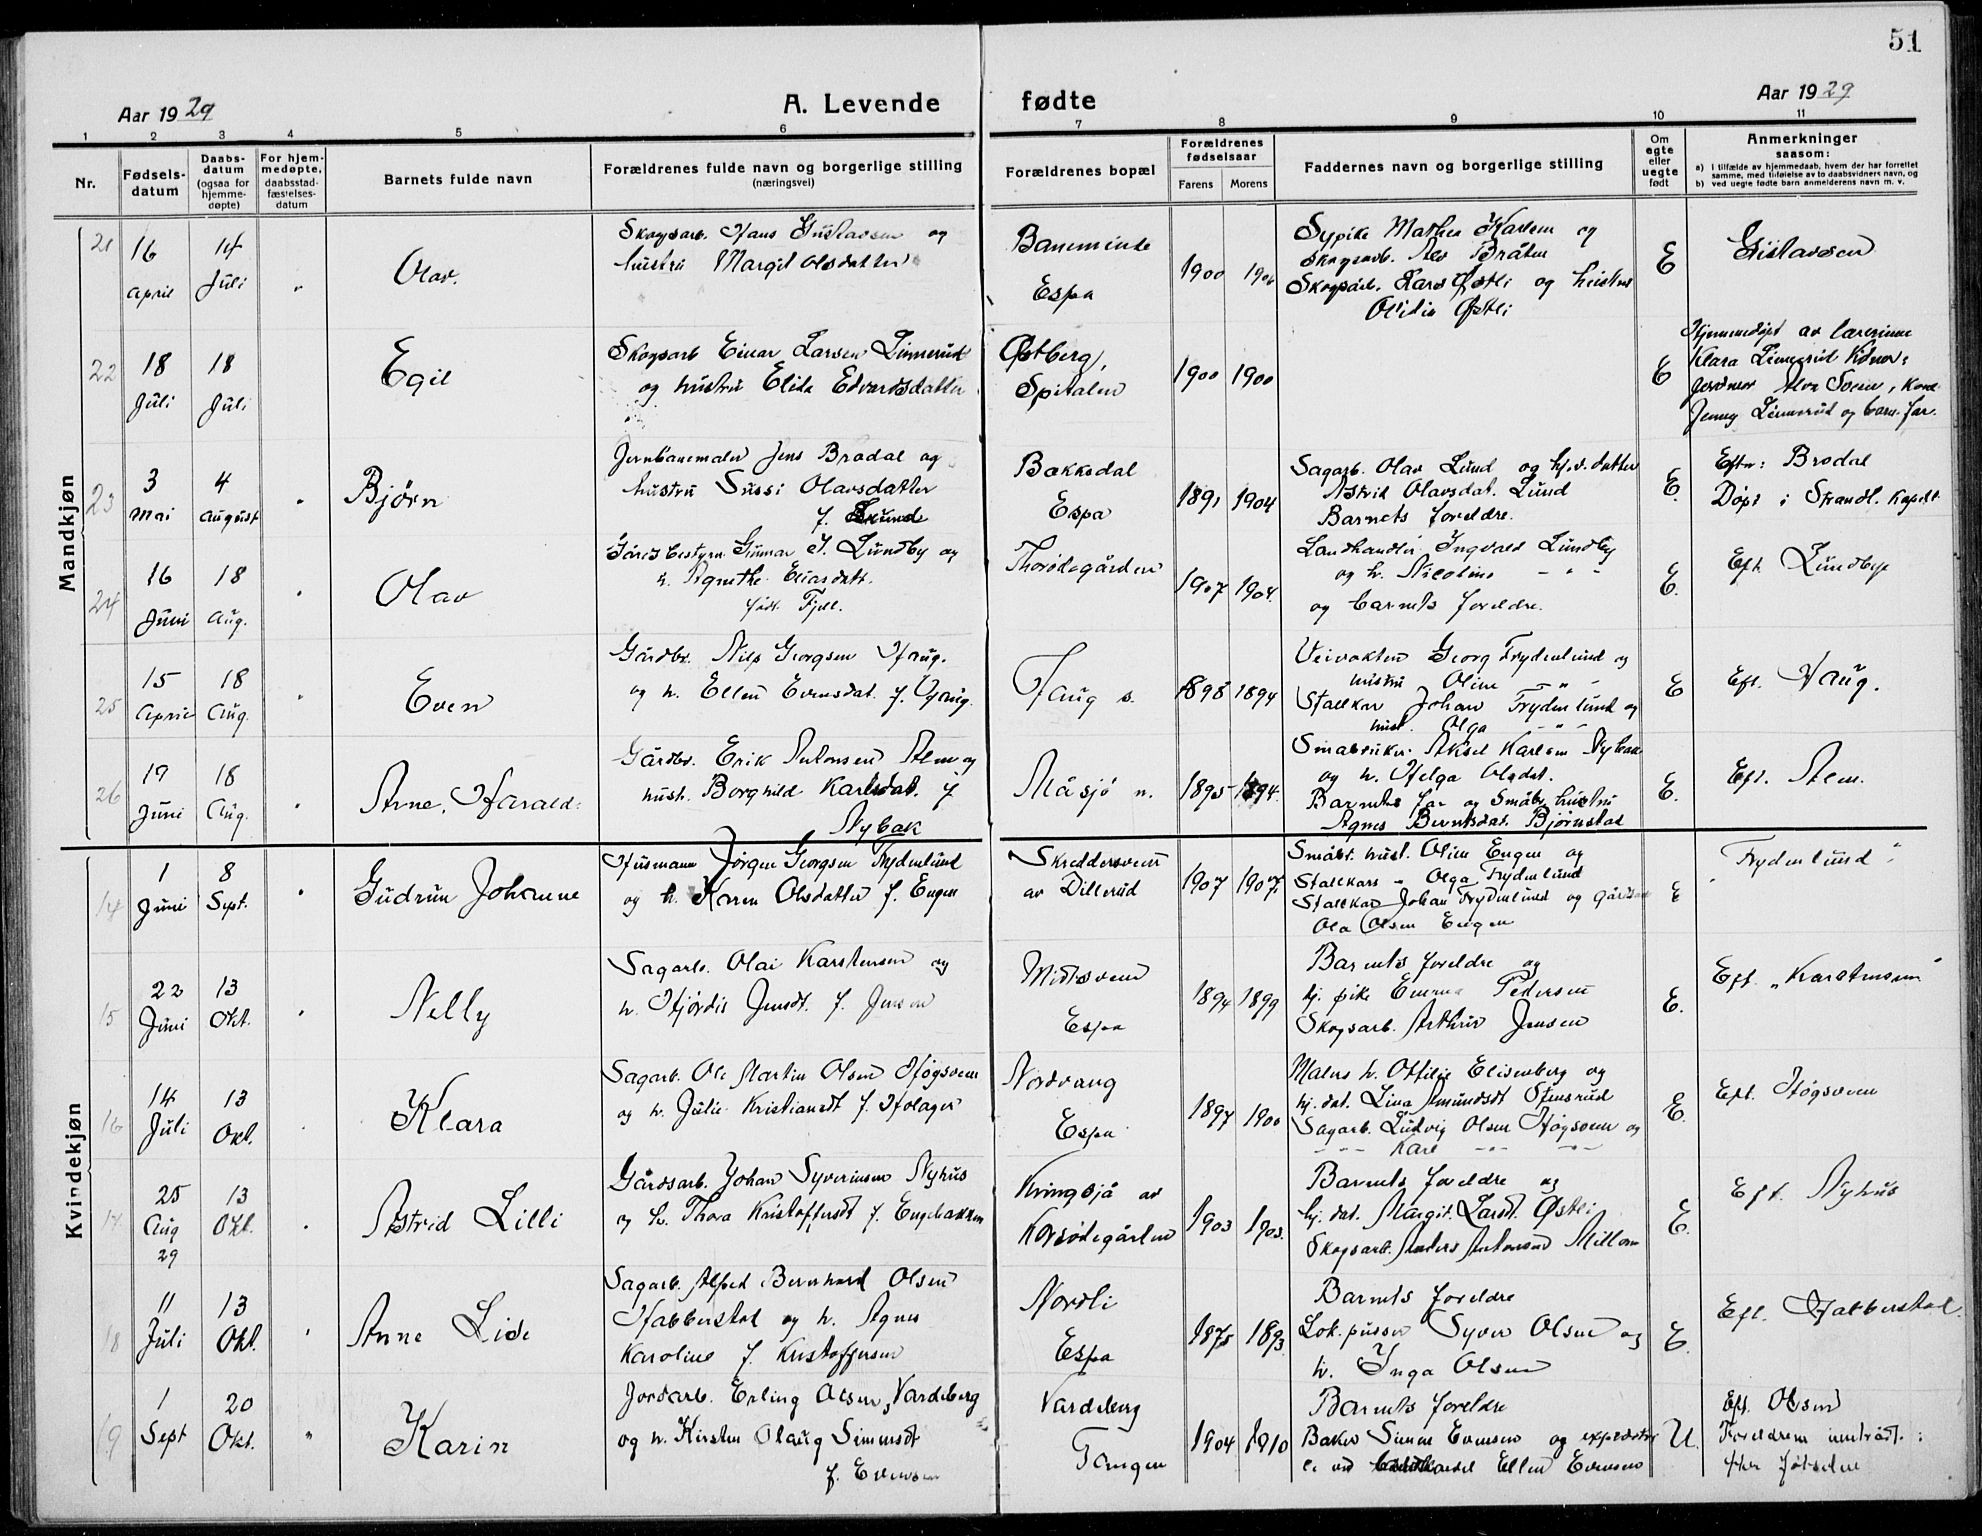 51
Aar 1929
A. Levende fødte
Aar 1929
1 2 3 4 5 6 7 8 9 10 11
Nr.
Fødsels-
datum
Daabs-
datum
(ogsaa for
hjemme-
døpte)
For hjem-
medøpte,
daabsstad-
fæstelses-
datum
Barnets fulde navn
Forældrenes fulde navn og borgerlige stilling
(næringsvei)
Forældrenes bopæl
Forældrenes
fødselsaar
Farens Morens
Faddernes navn og borgerlige stilling
Om
egte
eller
uegte
født
Anmerkninger
saasom:
a) i tilfælde av hjemmedaab, hvem der har forrettet
samme, med tilføielse av to daabsvidners navn, og
b) ved uegte fødte barn anmelderens navn m. v.
Mandkjøn
21
16
April
14
Juli
"
Olav.
Skogsarb. Hans Gustavsen og
hustru Margit Olsdatter
Baneminde
Espa
1900 1906
Sypike Mathea Karlsen og
Skogsarb. Alv Bråten
Skogsarb. Lars Østli og hustru
Olidia Østli
E
Gustavsen
22
18
Juli
18
Juli
Egil
Skogsarb Einar Larsen Linnerud
og hustru Elida Edvardsdatter
Østberg,
Spitalen
1900 1900
E
Hjemmedøpt av lærerinne
Klara Linnerud
Jenny Linnerud og barn. far.
23
3
Mai
4
August
"
Bjørn
Jernbanemaler Jens Brodal og
hustru Sussi Olavsdatter
f. Lund
Bakkedal
Espa
1891 1904
Sagarb. Olav Lund og hj.v. datter
Astrid Olavsdat. Lund
Barnets foreldre.
E.
Eftn: Brodal
Døpt i Strandl. kapel.
24
16
Juni
18
Aug.
"
Olav
Gårdsbestyrer Gunnar I. Lundby og
h. Agnethe Einarsdatt.
født Fjell.
Thorødegården
1907 1904.
Landhandler Ingvald Lundby
og h. Nicoline - " -
og barnets foreldre.
E.
Eft. Lundby
25
15
April
18
Aug.
"
Even
Gårdbr. Nils Georgsen Haug.
og h. Ellen Evensdat. f. Haug.
Haug s.
1898 1894
Veivokter Georg Frydenlund og
hustru Oline - " -
Stallkar Johan Frydenlund og
hust. Olga - " -
E
Eft. Haug.
26
19
Juni
18
Aug.
"
Arne, Harald
Gårdbr. Erik Antonsen Alm og
hust. Borghild Karlsdat. f
Nybak
Måsjø n.
1895 1894.
Småbruker Aksel Karlsen Nybak
og h. Helga Olsdat.
Barnets far og Småbr. hustru
Agnes Berntsdat. Bjørnstad
E.
Eft. Alm.
Kvindekjøn
14
1
Juni
8
Sept.
"
Gudrun Johanne
Husmann Jørgen Georgsen Frydenlund
og h. Karen Olsdatter f. Engen
Skreddersveen
av Dillerud
1907 1907.
Småbr. hust. Oline Engen og
Stallkars " Olga Frydenlund
Stallkar Johan Frydenlund og
Ola Olsen Engen
E
Frydenlund"
15
22
Juni
13
Okt.
"
Nelly
Sagarb. Olai Karstensen og
h. Hjørdis Jensdt. f. Jensen
Midtsveen
Espa
1894 1899
Barnets foreldre og
hj. pike Emma Pedersen
Skogsarb. Arthur Jensen
E.
Eft. "Karstensen"
16
14
Juli
13
Okt.
Klara
Sagarb. Ole Martin Olsen Høgsveen
og h. Julie Kristiansdt f. Holager
Nordvang
Espa
1897 1900
Malers h. Ottilie Elisenberg og
hj. dat. Lina Amundsdt Stensrud
Sagarb. Ludvig Olsen Høgsveen og
- " - Kåre - " - - " -
E.
Eft. Høgsveen
17
25
Aug
29
13
Okt.
"
Astrid Lilli
Gårdsarb. Johan Syverinsen Nyhus
og h. Thora Kristoffersdt f. Engebakken
Kringsjå av
Korsødegården
1903 1903.
Barnets foreldre og
hj. dat. Margit Larsdt. Østli
Skogsarb. Anders Antonsen Millom
E.
Eft. Nyhus
18
11
Juli
13
Okt.
"
Anne Lise
Sagarb. Alfred Bernhard Olsen
Habberstad og h. Agnes
Karoline f. Kristoffersen
Nordli
Espa
1875 1893.
Barnets foreldre
Lok. pusser Syver Olsen og
h. Inga Olsen
E.
Eft. Habberstad.
19
1
Sept
20
Okt.
"
Karin
Jordarb. Erling Olsen, Vardeberg
og h. Kirsten Olaug Simensdt
f. Evensen
Vardeberg
Tangen
1904 1910
Barnets foreldre
Baker Simen Evensen og
Ellen Evensen
U.
Eft. Olsen
Foreldrene inntrådt
efter fødselen